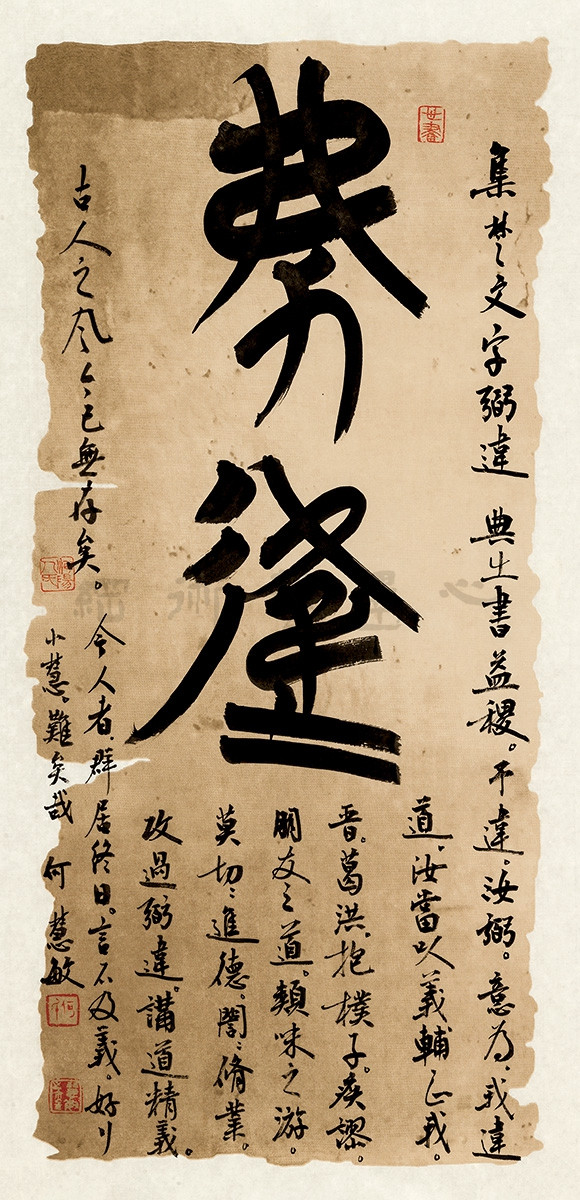 弼違
集楚文字弼違 典出書益稷。予違。汝弼。意為。我違
道。汝當以義輔正我。
晋。葛洪。抱樸子。疾謬。
朋友之道。類味之游。
莫切〻進德。誾〻脩業。
攻過弼違。講道精義。
古人之風今已無存矣。
今人者。群居終日。言不及義。好行
小慧。難矣哉 何慧敏